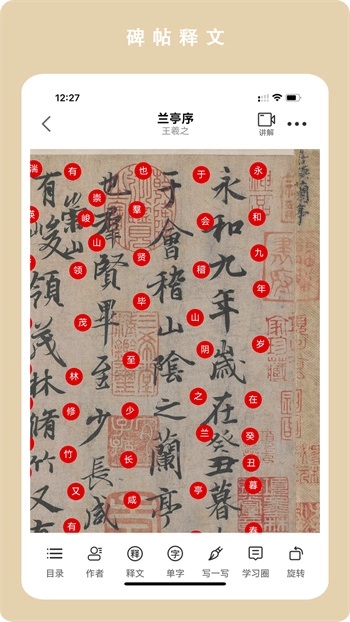 碑帖释文
12:27
兰亭序
王羲之
讲解
永和九年歲在癸丑暮
永和九年岁在癸丑暮春
于會稽山陰之蘭亭
于会稽山阴之兰亭
也群賢畢至少長咸
也群贤毕至少长咸
有崇山峻領茂林脩竹又有
有崇山峻领茂林修竹又有
湍
目录
作者
释 释文
字 单字
写一写
学习圈
旋转